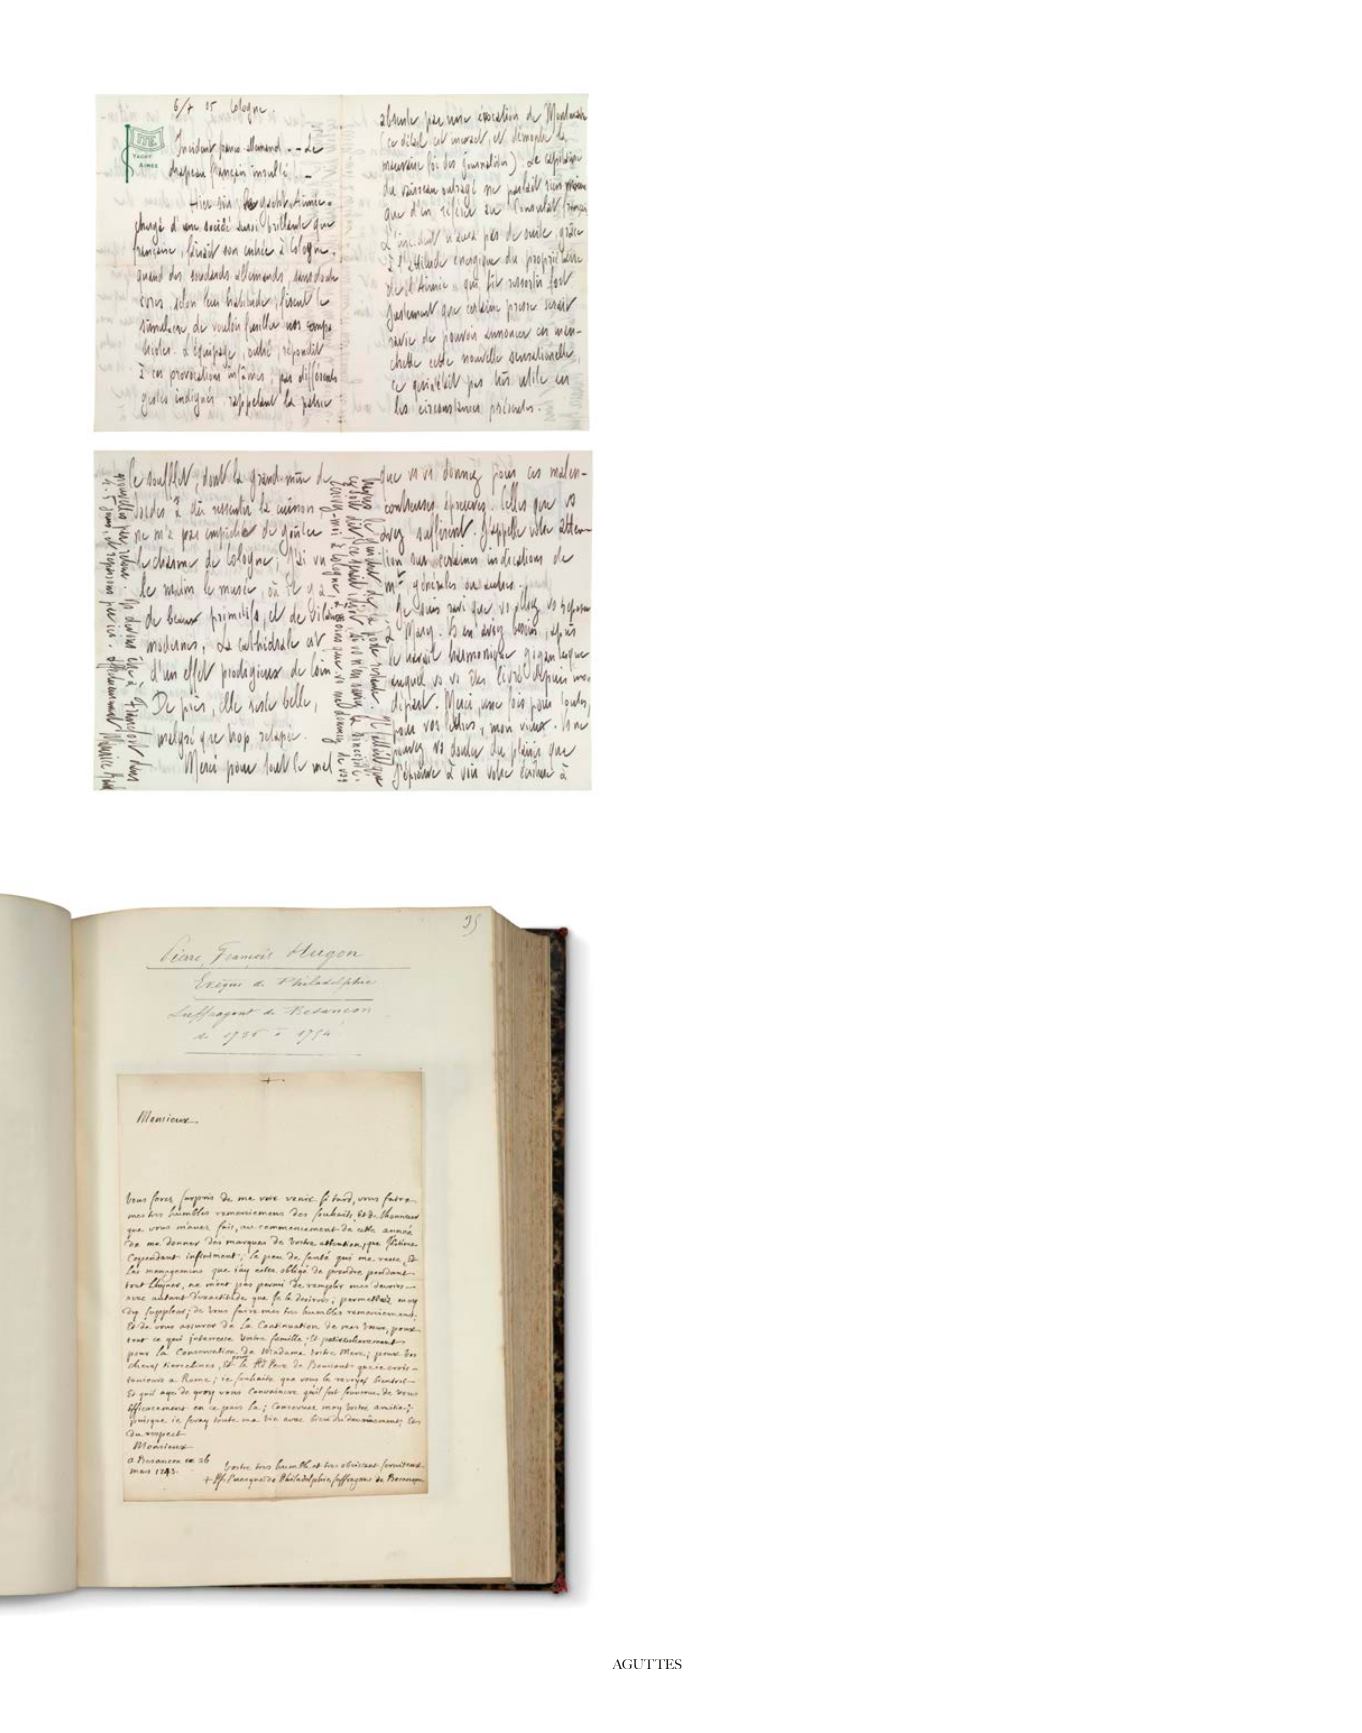 6/7 05 Cologne.
YACHT
AIMÉE
Incident franco-allemand -- Le
drapeau français insulté! -
Hier soir le yacht Aimée
chargé d'une société aussi brillante que
française, faisait son entrée à Cologne,
quand des soudards allemands, sans doute
ivres, selon leur habitude, firent le
simulacre de vouloir fusiller nos compa-
triotes. L'équipage, outré, répondit
à ces provocations infâmes, par différents
gestes indignés rappelant la patrie
absente par une évocation de
(ce détail est inexact, et démontre la
mauvaise foi des journalistes). Le capitaine
du vaisseau outragé ne parlait rien moins
que d'en référer au Consulat français
L'incident n'aura pas de suite, grâce
à l'attitude énergique du propriétaire
de l'Aimée, qui fit ressortir fort
justement que certaine presse serait
ravie de pouvoir annoncer en man-
chette cette nouvelle sensationnelle,
ce qui n'était pas très utile en
les circonstances présentes.
Ce soufflet, dont la grand-mère de
a dû ressentir la cuisson
ne m'a pas empêché de goûter
le charme de Cologne; j'ai vu
le matin le musée, où il y a
de beaux primitifs, et de vilains
modernes. La cathédrale est
d'un effet prodigieux de loin
De près, elle reste belle,
malgré que trop retapée.
Merci pour tout le mal
que vs vs donnez pour ces malen-
contreuses épreuves. Celles que vs
avez suffiront. J'appelle votre atten-
tion sur certaines indications de
générales ou autres.
Je suis ravi que vs alliez vs reposer
à Mary. Vs en avez besoin, après
le travail harmonique gigantesque
auquel vs vs êtes livré depuis mon
départ. Merci, une fois pour toutes,
pour vos lettres, mon vieux. Vs ne
pouvez vs douter du plaisir que
j'éprouve à voir votre écriture à
Écrivez-moi à Cologne, à moins que vs ne donniez de vos
nouvelles par retour. Ns devons être à Francfort dans
4-5 jours, et repassons par ici. Affectueusement Maurice
35
Pierre, François Hugon
Evêque de Philadelphie
Suffragant de Besançon
de 1736 à 1754
Monsieur.
Vous serez surpris de me voir venir si tard, vous faire
mes tres humbles remerciemens des souhaits, et de lhonneur
que vous m'aues fait, au commencement de cette année
de me donner des marques de vostre attention, que j'estime
Cependant infiniment; le peu de santé qui me reste, et
Les menagemens que j'ay estes obligé de prendre pendant
tout l'hyver, ne m'ont pas permi de remplir mes devoirs
avec autant d'exactitude que je le desirois; permettez moy
d'y suppleer; de vous faire mes tres humbles remerciemens;
Et de vous assurer de La Continuation de mes voeux, pour
tout ce qui interresse vostre famille, Et particulierement
pour la Conservation de Madame vostre Mere; pour vos
cheres tiercelines, Et pour le Rd Pere de que ie crois
tousiours a Rome; ie souhaite que vous le revoyes bientost
Et quil aye de quoy vous Convaincre quil s'est souvenu de vous
Efficacement en ce pais la; Conserves moy vostre amitié;
puisque ie seray toute ma vie avec bien du devouement, Et
du respect
Monsieur
a Besancon ce 26
mars 1743.
Vostre tres humble et tres obeissant serviteur
+ pf. L'evesque de Philadelphie suffragant de Besancon
AGUTTES